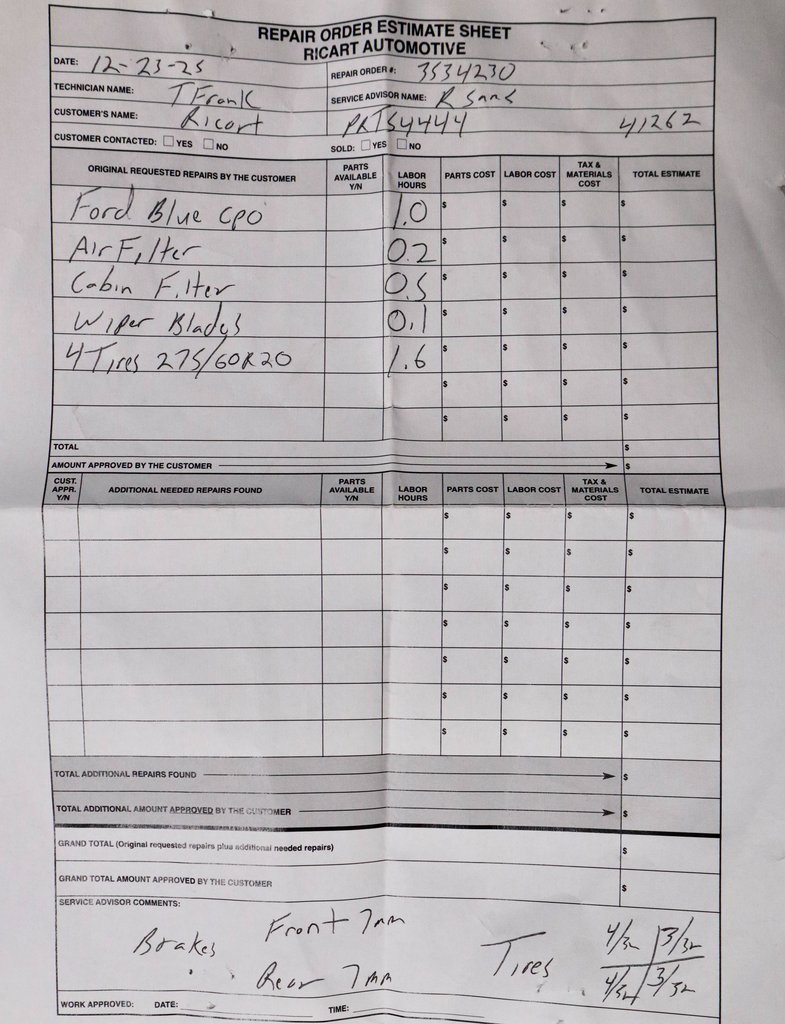 REPAIR ORDER ESTIMATE SHEET
RICART AUTOMOTIVE
DATE: 12-23-25 REPAIR ORDER #: 3534230
TECHNICIAN NAME: T Frank SERVICE ADVISOR NAME: R Sans
CUSTOMER'S NAME: Ricart PRTS4444 41262
CUSTOMER CONTACTED: YES NO SOLD: YES NO
ORIGINAL REQUESTED REPAIRS BY THE CUSTOMER PARTS AVAILABLE Y/N LABOR HOURS PARTS COST LABOR COST TAX & MATERIALS COST TOTAL ESTIMATE
Ford Blue CPO 1.0 $ $ $ $
Air Filter 0.2 $ $ $ $
Cabin Filter 0.5 $ $ $ $
Wiper Blades 0.1 $ $ $ $
4 Tires 275/60R20 1.6 $ $ $ $
$ $ $ $
$ $ $ $
TOTAL $
AMOUNT APPROVED BY THE CUSTOMER $
CUST. APPR. Y/N ADDITIONAL NEEDED REPAIRS FOUND PARTS AVAILABLE Y/N LABOR HOURS PARTS COST LABOR COST TAX & MATERIALS COST TOTAL ESTIMATE
$ $ $ $
$ $ $ $
$ $ $ $
$ $ $ $
$ $ $ $
$ $ $ $
$ $ $ $
TOTAL ADDITIONAL REPAIRS FOUND $
TOTAL ADDITIONAL AMOUNT APPROVED BY THE CUSTOMER $
GRAND TOTAL (Original requested repairs plus additional needed repairs) $
GRAND TOTAL AMOUNT APPROVED BY THE CUSTOMER $
SERVICE ADVISOR COMMENTS:
Brakes Front 7mm Tires 4/32 3/32
Rear 7mm 4/32 3/32
WORK APPROVED: DATE: TIME: